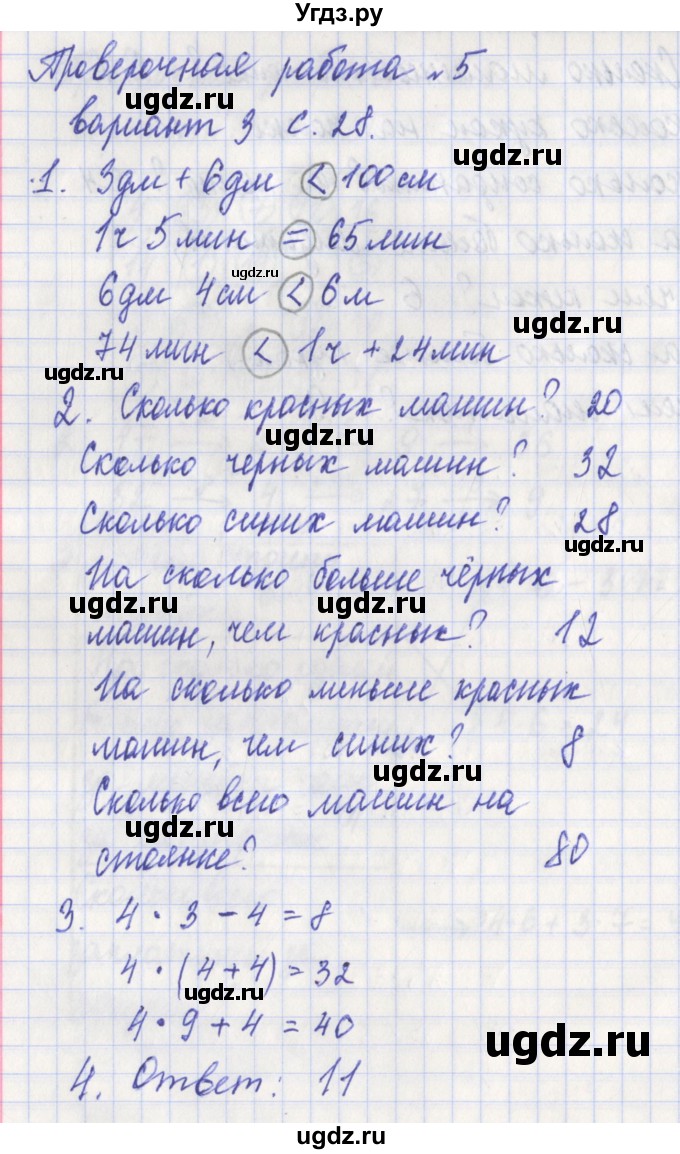 Угдз.ру
Проверочная работа №5
вариант 3 с. 28.
1. 3дм + 6дм < 100см
1ч 5мин = 65мин
6дм 4см < 6м
74мин < 1ч + 24мин
2. Сколько красных машин? 20
Сколько черных машин? 32
Сколько синих машин? 28
На сколько больше чёрных
машин, чем красных? 12
На сколько меньше красных
машин, чем синих? 8
Сколько всего машин на
стоянке? 80
3. 4 · 3 - 4 = 8
4 · (4 + 4) = 32
4 · 9 + 4 = 40
4. Ответ: 11
ugdz.ru
ugdz.ru
ugdz.ru
ugdz.ru
ugdz.ru
ugdz.ru
ugdz.ru
ugdz.ru
ugdz.ru
ugdz.ru
ugdz.ru
ugdz.ru
ugdz.ru
ugdz.ru